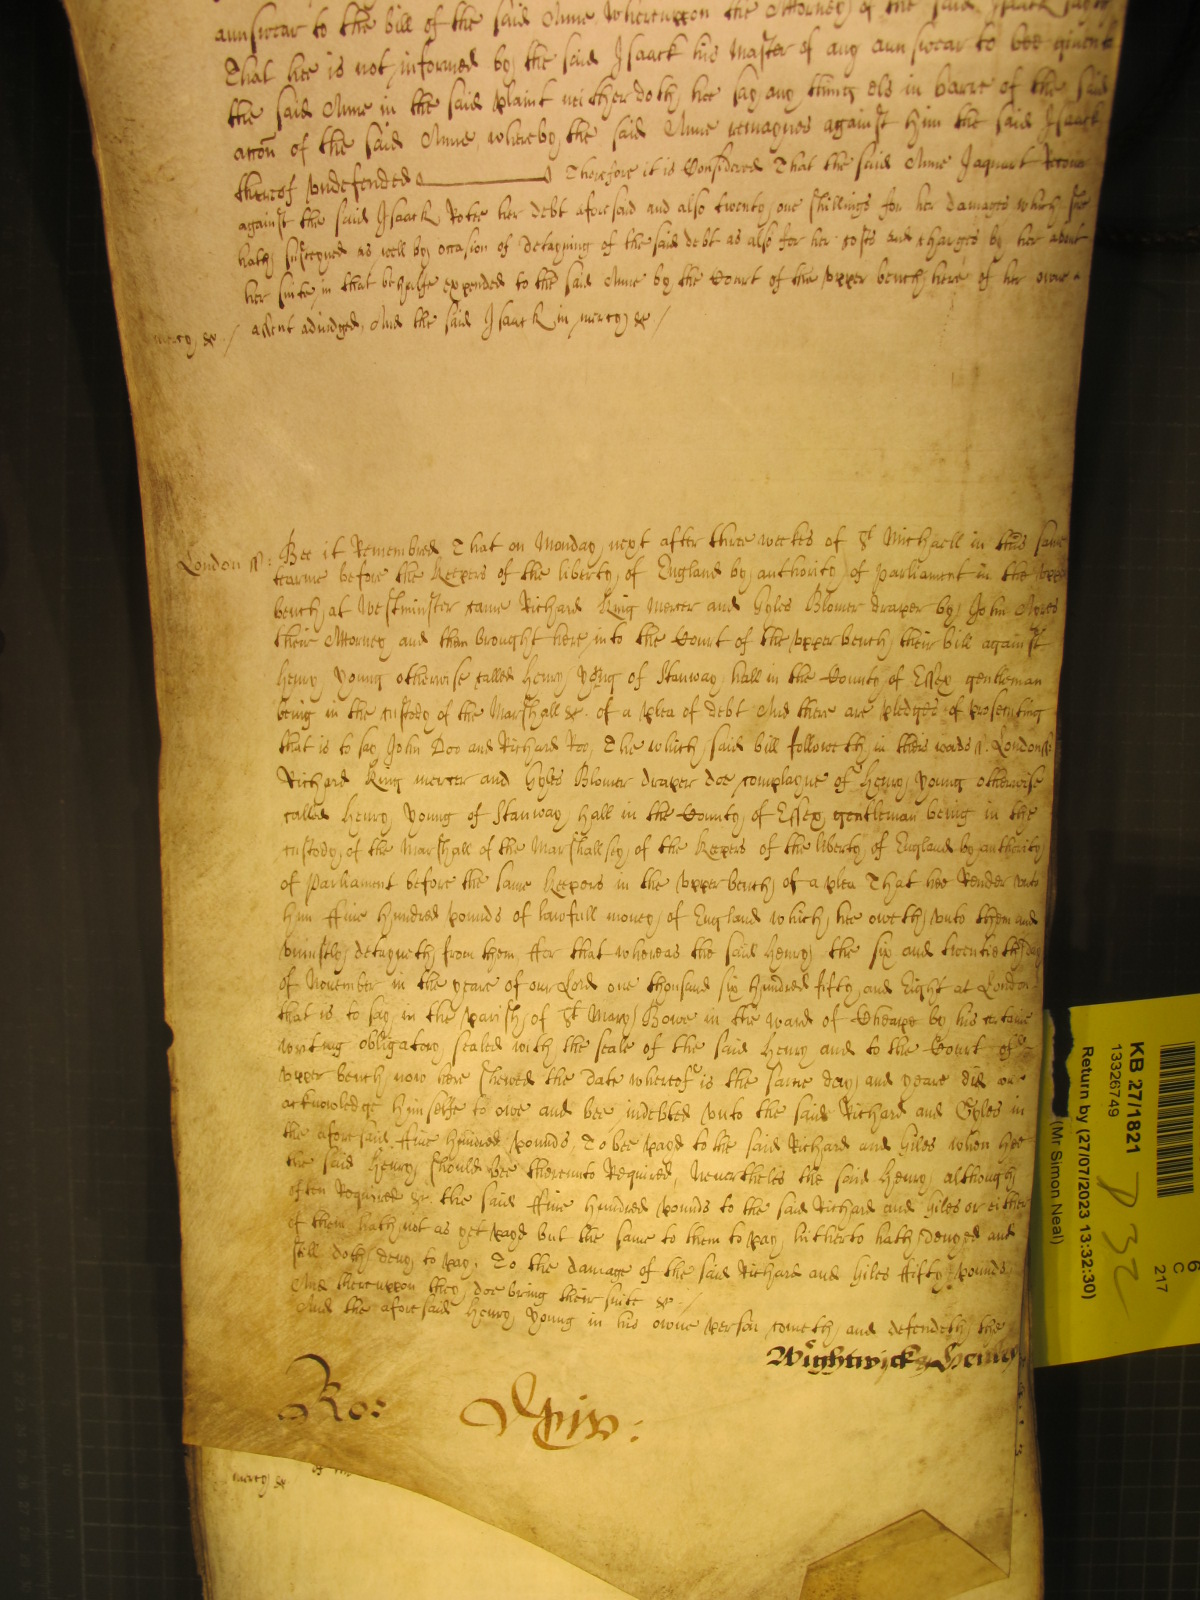 aunswear to the bill of the said Anne Whereuppon the Attorney of the said Isaack sayth
That hee is not informed by the said Isaack his Master of any aunswear to bee given to
the said Anne in the said plaint neither doth hee say any thing els in barre of the said
accon of the said Anne, whereby the said Anne remaynes against him the said Isaack
thereof undefended Therefore it is Considered That the said Anne Jaquart Recover
against the said Isaack her debt aforesaid and also twenty one shillings for her damages which shee
hath susteyned as well by occasion of detayning of the said debt as also for her costs and charges by her about
her suite in that behalfe expended to the said Anne by the Court of the upper bench here of her owne
assent adiudged, And the said Isaack in mercy &c /
mercy &c /
London ss: Bee it Remembred That on Monday next after three weekes of St Michaell in this same
tearme before the Keepers of the liberty of England by authority of parliament in the upper
bench at Westminster came Richard King mercer and Gyles Blomer draper by John Ayres
their Attorney and then brought here into the Court of the upper bench their bill against
Henry Young otherwise called Henry Yong of Stanway hall in the County of Essex gentleman
being in the custody of the Marshall &c. of a plea of debt And there are pledges of prosecuting
that is to say John Doo and Richard Roo, The which said bill followeth in theis words ss. London ss:
Richard King mercer and Gyles Blomer draper doe complayne of Henry Young otherwise
called Henry Young of Stanway Hall in the County of Essex gentleman being in the
custody of the Marshall of the Marshallsey of the Keepers of the liberty of England by authority
of Parliament before the same Keepers in the upper bench of a plea That hee Render unto
him ffive Hundred pounds of lawfull money of England which hee oweth unto them and
uniustly detayneth from them, ffor that whereas the said Henry the six and twentieth day
of November in the yeare of our Lord one thousand six hundred fifty and Eight at London
that is to say in the parish of St Mary Bowe in the ward of Cheape by his certaine
writing obligatory sealed with the seale of the said Henry and to the Court of the
upper bench now here shewed the date whereof is the same day and yeare did
acknowledge himselfe to owe and bee indebted unto the said Richard and Gyles in
the aforesaid ffive hundred pounds, To bee payd to the said Richard and Giles when hee
the said Henry should bee thereunto Required, Neverthelesse the said Henry although
often Required &c. the said ffive hundred pounds to the said Richard and Giles or either
of them hath not as yet payd but the same to them to pay hitherto hath denyed and
still doth deny to pay, To the damage of the said Richard and Giles ffifty pounds
And thereuppon they doe bring their suite &c. /
And the aforesaid Henry Young in his owne person cometh and defendeth the
Wightwick &
Ro:
mercy &c
KB 27/1821
13326749
Return by (27/07/2023 13:32:30)
(Mr Simon Neal)
C
217
P 32